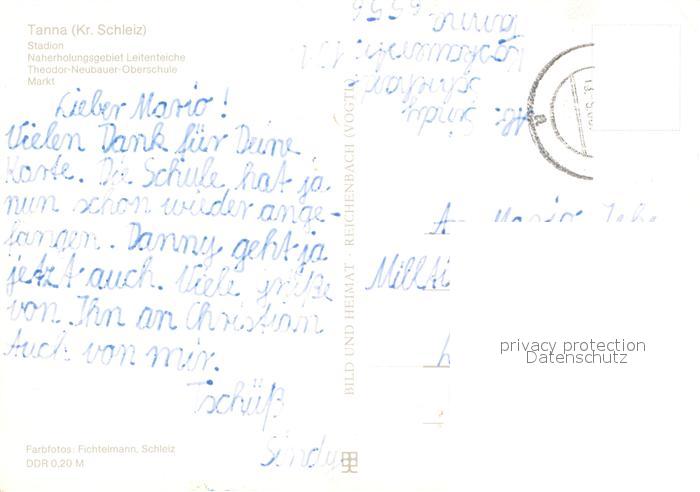 Tanna (Kr. Schleiz)
Stadion
Naherholungsgebiet Leitenteiche
Theodor-Neubauer-Oberschule
Markt
Lieber Mario!
Vielen Dank für Deine
Karte. Die Schule hat ja
nun schon wieder ange-
fangen. Danny geht ja
jetzt auch. Viele grüße
von Ihn an Christian
Auch von mir.
Tschüß
Sindy
Farbfotos: Fichtelmann, Schleiz
DDR 0,20 M
BILD UND HEIMAT · REICHENBACH (VOGTL
Abs. Sindy
Tanna
6556
Mario
privacy protection
Datenschutz